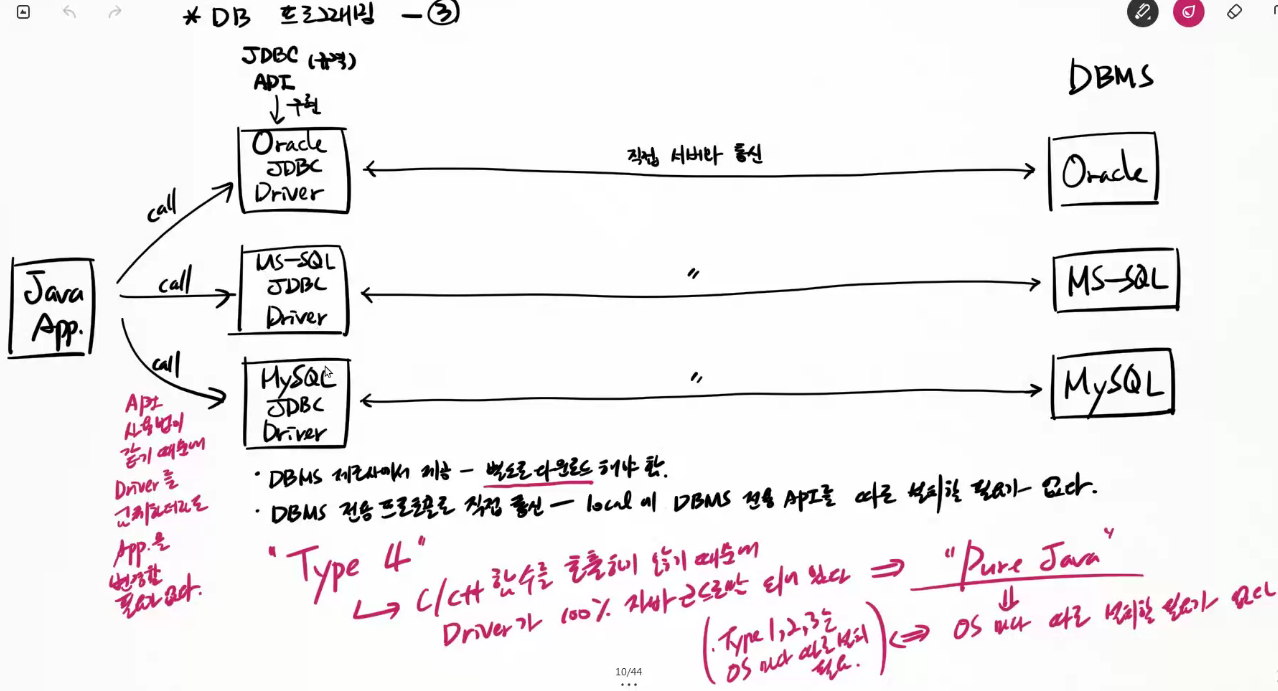 * DB 프로그래밍 - ③
JDBC (규격)
API
↓ 구현
DBMS
Oracle
JDBC
Driver
직접 서버와 통신
Oracle
call
MS-SQL
JDBC
Driver
"
MS-SQL
Java
App.
call
call
MySQL
JDBC
Driver
"
MySQL
API
사용법이
같기 때문에
Driver를
교체하더라도
App.을
변경할
필요가 없다.
· DBMS 제조사에서 제공 - 별도로 다운로드 해야 함.
· DBMS 전용 프로토콜로 직접 통신 - local에 DBMS 전용 API를 따로 설치할 필요가 없다.
"Type 4"
↳ C/C++ 함수를 호출하지 않기 때문에
Driver가 100% 자바 코드로만 되어 있다 ⇒ "Pure Java"
⇓
OS마다 따로 설치할 필요가 없다
(. Type 1,2,3는
OS마다 따로 설치
필요.) ⇔
10/44